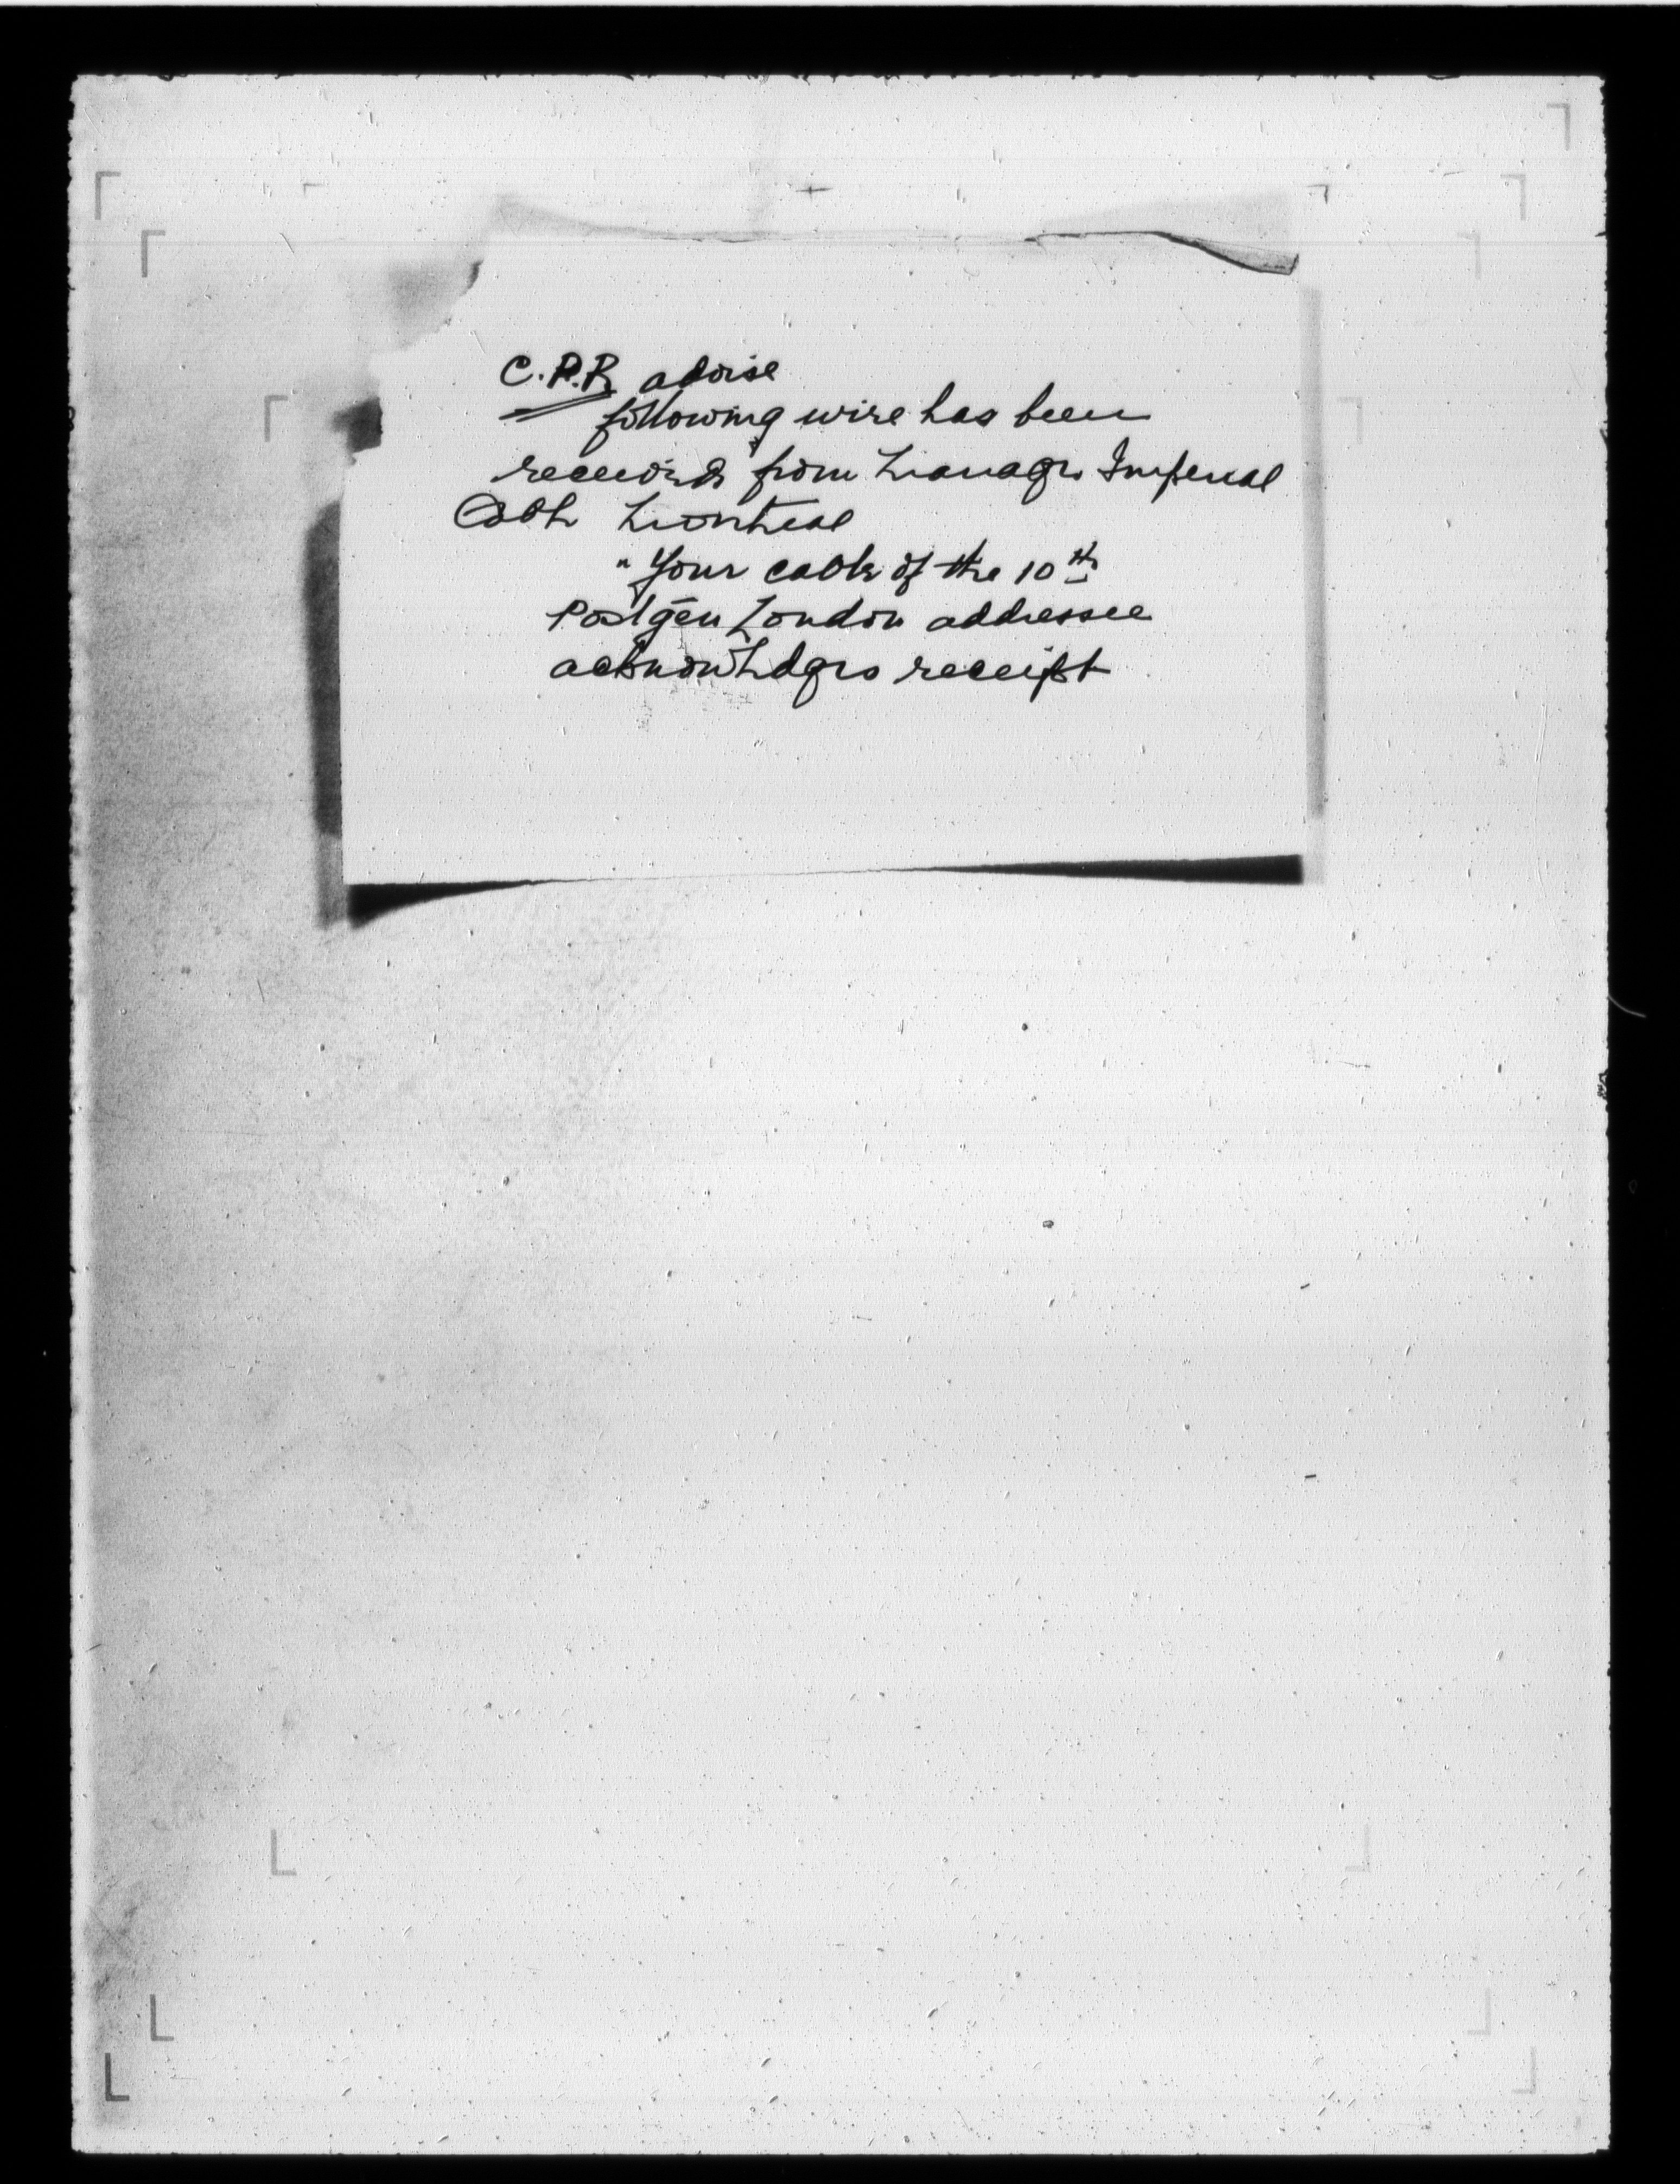 C.P.R. advise
following wire has been
received from Manager Imperial
Cable Montreal
"Your cable of the 10th
Postgen London addressee
acknowledges receipt